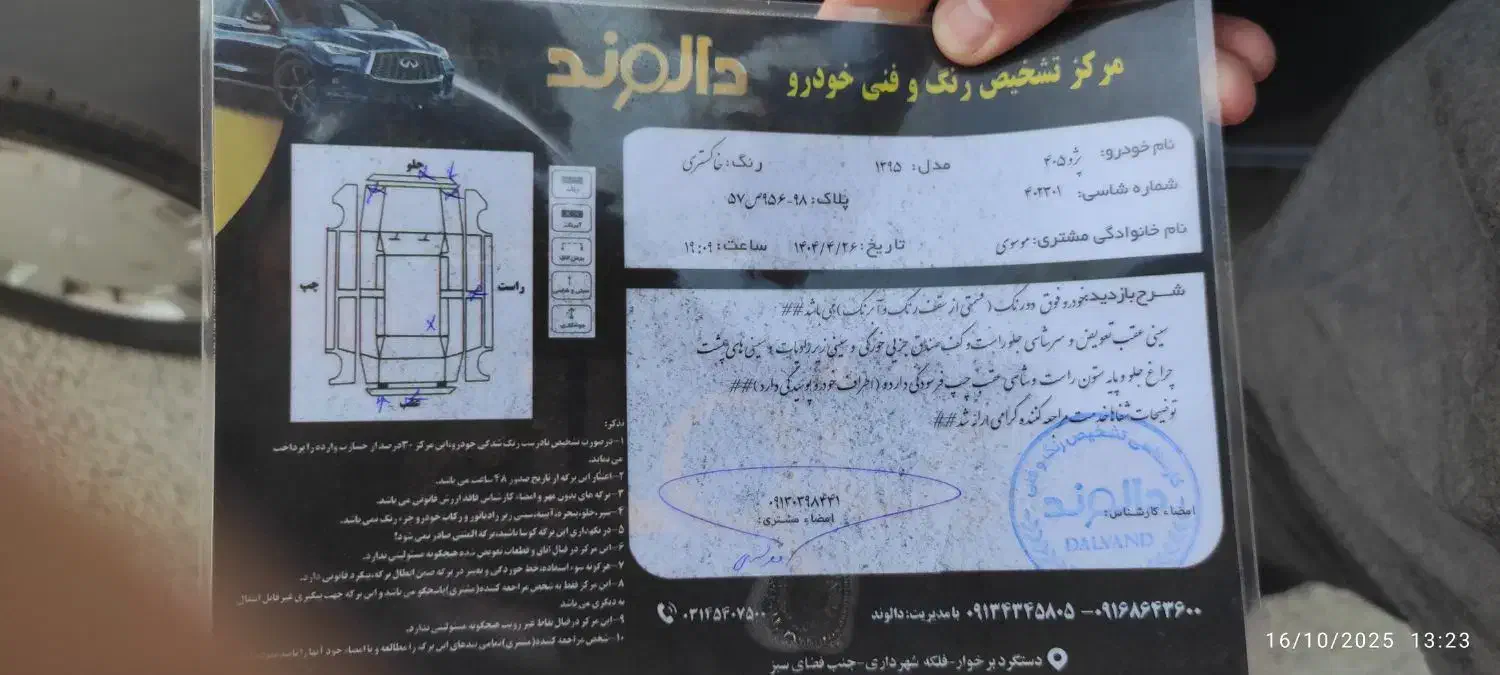 دالوند
مرکز تشخیص رنگ و فنی خودرو
نام خودرو: پژو ۴۰۵ مدل: ۱۳۹۵ رنگ: خاکستری
شماره شاسی: ۴۰۲۳۰۱ پلاک: ۹۸-۹۵۶ص۵۷
نام خانوادگی مشتری: موسوی تاریخ: ۱۴۰۴/۴/۲۶ ساعت: ۱۹:۰۹
جلو
چپ
راست
عقب
رنگ
شرح بازدید: خودرو فوق دور رنگ (قسمتی از سقف رنگ و آبرنگ) می باشد##
سینی عقب تعویض و سرشاسی جلو راست و کف صندوق جزیی خوردگی و سینی زیر رادیات و سینی های پشت
چراغ جلو و پایه ستون راست و شاسی عقب چپ فرسودگی دارد (اطراف خودرو پوسیدگی دارد)##
توضیحات شفاها خدمت مراجعه کننده گرامی ارائه شد##
۰۹۱۳۰۳۹۸۴۴۱
امضاء مشتری:
امضاء کارشناس:
کارشناسی تشخیص رنگ و فنی
دالوند
DALVAND
تذکر:
۱-درصورت تشخیص نادرست رنگ شدگی خودرو،این مرکز ۳۰درصد از خسارت وارده را پرداخت
می نماید.
۲-اعتبار این برگه از تاریخ صدور ۴۸ ساعت می باشد.
۳-برگه های بدون مهر و امضاء کارشناس فاقد ارزش قانونی می باشد.
۴-سپر،جلو پنجره،آیینه،سینی زیر رادیاتور و رکاب خودرو جزء رنگ نمی باشد.
۵-در نگهداری این برگه کوشا باشید،برگه المثنی صادر نمی شود!
۶-این مرکز در قبال اتاق و قطعات تعویض شده هیچگونه مسئولیتی ندارد.
۷-هرگونه سوء استفاده،خط خوردگی و تغییر در برگه ضمن ابطال برگه،پیگرد قانونی دارد.
۸-این مرکز فقط به شخص مراجعه کننده(مشتری)پاسخگو می باشد و این برگه جهت پیگیری غیر قابل انتقال
به دیگری می باشد
۹-این مرکز در قبال نقاط غیر رویت هیچگونه مسئولیتی ندارد.
۱۰-شخص مراجعه کننده(مشتری)تمامی بندهای این برگه را مطالعه و با امضاء خود آنها را تایید
۰۹۱۶۸۶۴۳۶۰۰-۰۹۱۳۴۳۴۵۸۰۵ با مدیریت: دالوند
۰۳۱۴۵۴۰۷۵۰۰
دستگرد برخوار-فلکه شهرداری-جنب فضای سبز
16/10/2025 13:23